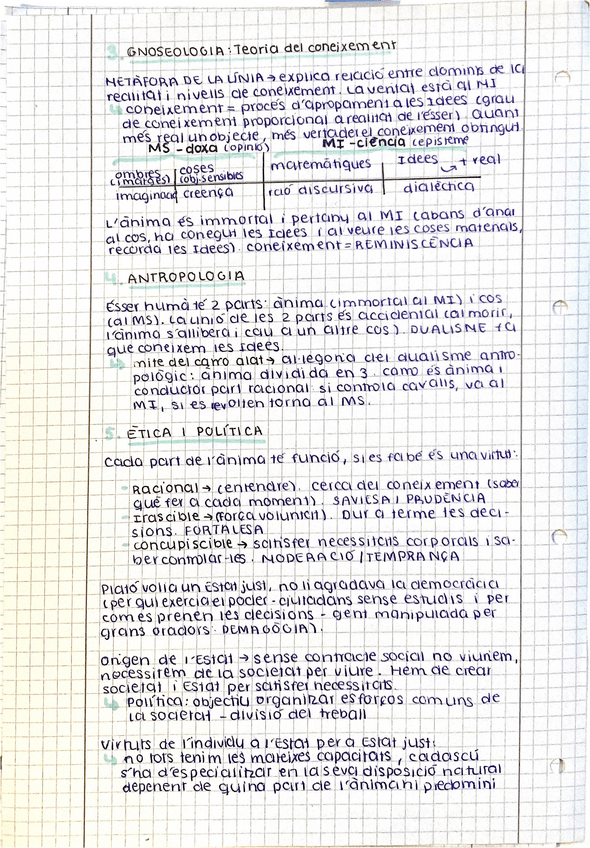 3. GNOSEOLOGIA: Teoria del coneixement
METÀFORA DE LA LÍNIA → explica relació entre dominis de la
realitat i nivells de coneixement. La veritat està al MI
↳ coneixement = procés d'apropament a les Idees (grau
de coneixement proporcional a realitat de l'ésser). Quant
més real un objecte, més vertader el coneixement obtingut
MS - doxa (opinió) MI - ciència (episteme
ombres (imatges) | coses (obj. sensibles) | matemàtiques | Idees → + real
imaginació | creença | raó discursiva | dialèctica
L'ànima és immortal i pertany al MI (abans d'anar
al cos, ha conegut les Idees i al veure les coses materials,
recorda les Idees). coneixement = REMINISCÈNCIA
4. ANTROPOLOGIA
Ésser humà té 2 parts: ànima (immortal al MI) i cos
(al MS). La unió de les 2 parts és accidental (al morir,
l'ànima s'allibera i cau a un altre cos). DUALISME
que coneixem les Idees.
↳ mite del carro alat → al·legoria del dualisme antro-
pològic: ànima dividida en 3. carro és ànima i
conductor part racional: si controla cavalls, va al
MI, si es revolten torna al MS.
5. ÈTICA I POLÍTICA
Cada part de l'ànima té funció, si es fa bé és una virtut:
- Racional → (entendre). cerca del coneixement (saber
què fer a cada moment). SAVIESA I PRUDÈNCIA
- Irascible → (força voluntat). Dur a terme les deci-
sions. FORTALESA
- concupiscible → satisfer necessitats corporals i sa-
ber controlar-les. MODERACIÓ / TEMPRANÇA
Plató volia un Estat just, no li agradava la democràcia
(per qui exercia el poder - ciutadans sense estudis i per
com es prenen les decisions - gent manipulada per
grans oradors: DEMAGÒGIA).
origen de l'Estat → sense contracte social no viuríem,
necessitem de la societat per viure. Hem de crear
societat i Estat per satisfer necessitats.
↳ Política: objectiu organitzar esforços comuns de
la societat - divisió del treball
Virtuts de l'individu a l'Estat per a Estat just:
↳ no tots tenim les mateixes capacitats, cadascú
s'ha d'especialitzar en la seva disposició natural
depenent de quina part de l'ànima hi predomini